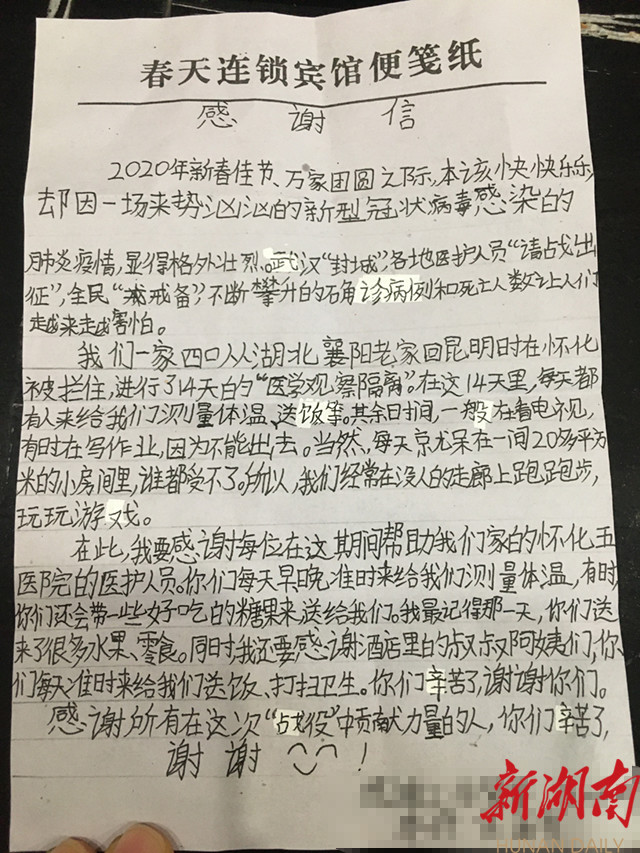 春天连锁宾馆便笺纸
感谢信
2020年新春佳节、万家团圆之际,本该快快乐乐,
却因一场来势汹汹的新型冠状病毒感染的
肺炎疫情,显得格外壮烈。武汉“封城”,各地医护人员“请战出
征”,全民“戒备”,不断攀升的确诊病例和死亡人数让人们
越来越害怕。
我们一家四口从湖北襄阳老家回昆明时在怀化
被拦住,进行了14天的“医学观察隔离”。在这14天里,每天都
有人来给我们测量体温、送饭等。其余时间,一般在看电视,
有时在写作业,因为不能出去。当然,每天就呆在一间20多平方
米的小房间里,谁都受不了。所以,我们经常在没人的走廊上跑跑步,
玩玩游戏。
在此,我要感谢每位在这期间帮助我们家的怀化五
医院的医护人员。你们每天早晚准时来给我们测量体温,有时
你们还会带一些好吃的糖果来送给我们。我最记得那一天,你们送
来了很多水果、零食。同时,我还要感谢酒店里的叔叔阿姨们,你
们每天准时来给我们送饭、打扫卫生。你们辛苦了,谢谢你们。
感谢所有在这次“战役”中贡献力量的人,你们辛苦了,
谢谢!
新湖南
HUNAN DAILY